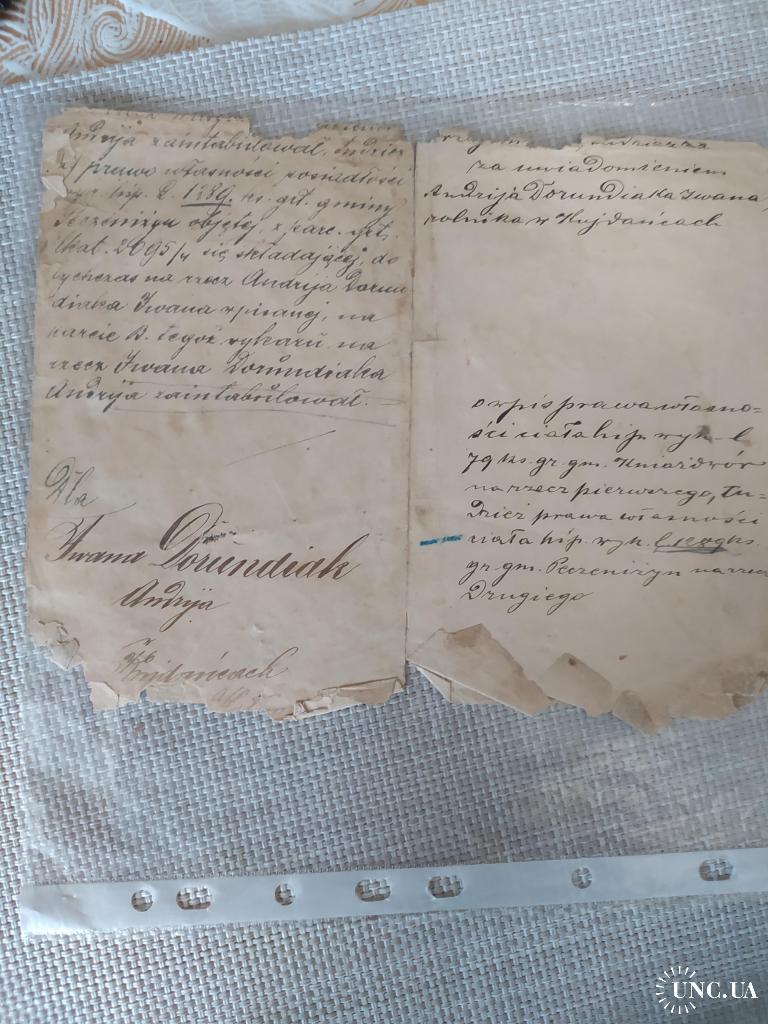 Andrija zaintabulował, tudzież
prawo własności posiadłości
hip. L. 1389. ks. grt. gminy
Peczeniżyn objętej, z parc. grt.
lkat. 2695/4 się składającej, do
tychczas na rzecz Andrija Dorun
diaka Iwana wpisanej, na
karcie B. tegoż wykazu na
rzecz Iwana Dorundiaka
Andrija zaintabulował. —
Dla
Iwana Dorundiak
Andrija
za uwiadomieniem
Andrija Dorundiaka Iwana,
rolnika w Kujdańcach
o wpis prawa własno-
ści ciała hip. wyk. l
79 ks. gr. gm. Kniaźdwór
na rzecz pierwszego, tu-
dzież prawa własności
ciała hip. wyk. l. 1389 ks.
gr. gm. Peczeniżyn na rzecz
Drugiego
UNC.UA